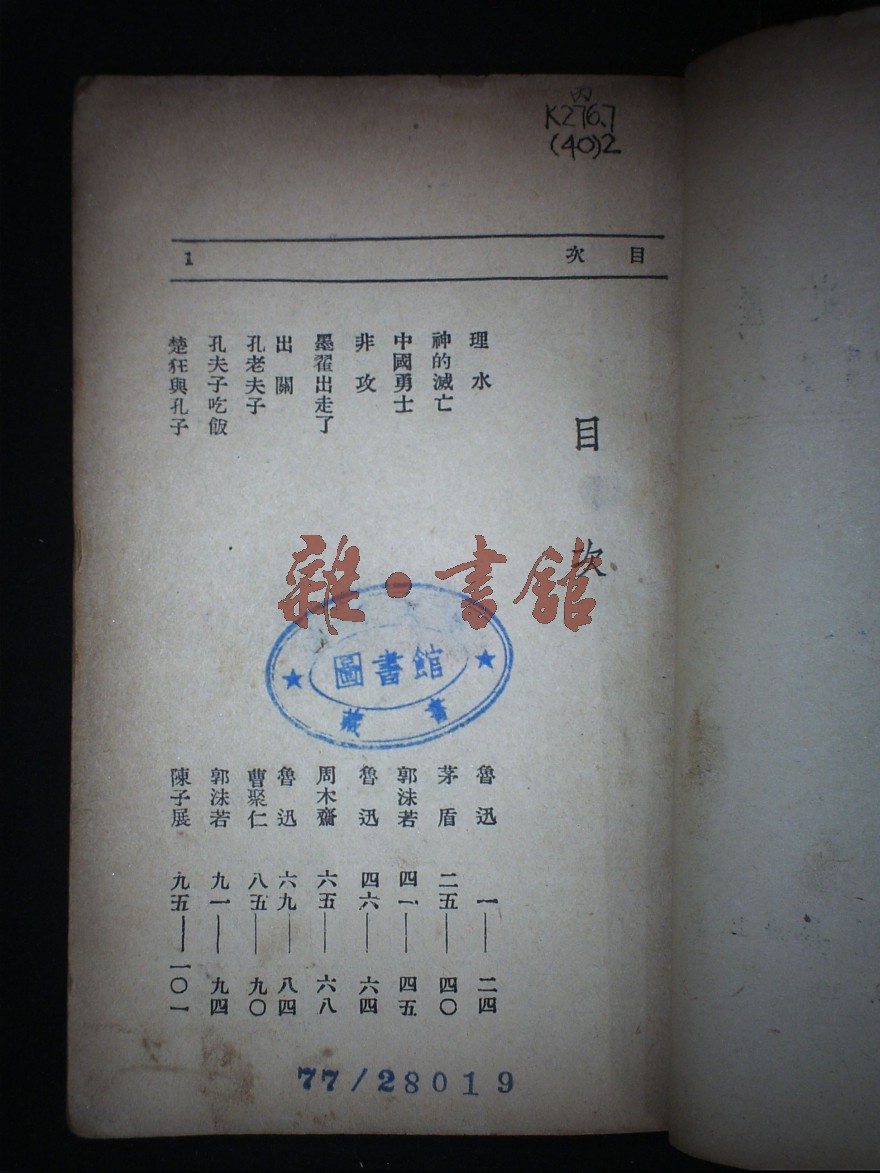 丙
K276.7
(40)2
目次
1
目次
理水 魯迅 一——二四
神的滅亡 茅盾 二五——四〇
中國勇士 郭沫若 四一——四五
非攻 魯迅 四六——六四
墨翟出走了 周木齋 六五——六八
出關 魯迅 六九——八四
孔老夫子 曹聚仁 八五——九〇
孔夫子吃飯 郭沫若 九一——九四
楚狂與孔子 陳子展 九五——一〇一
雜·書館
圖書館
藏書
77/28019